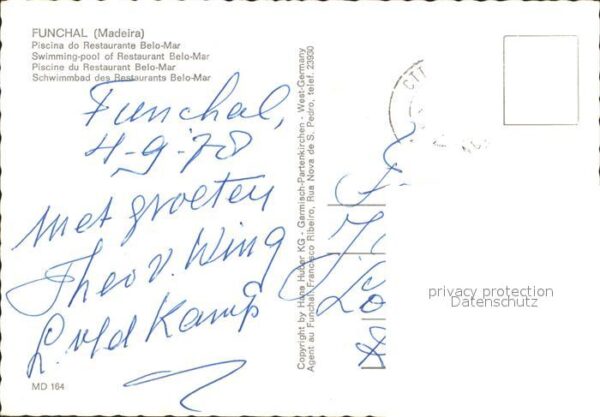 FUNCHAL (Madeira)
Piscina do Restaurante Belo-Mar
Swimming-pool of Restaurant Belo-Mar
Piscine du Restaurant Belo-Mar
Schwimmbad des Restaurants Belo-Mar
Funchal,
4-9-78
Met groeten
Theo v. Wing
L. v/d Kamp
MD 164
Copyright by Hans Huber KG - Garmisch-Partenkirchen - West-Germany
Agent au Funchal: Francisco Ribeiro, Rua Nova de S. Pedro, telef. 23930
CTT
privacy protection
Datenschutz